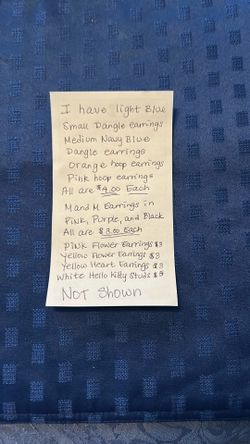 I have light Blue
Small Dangle earrings
Medium Navy Blue
Dangle earrings
Orange hoop earrings
Pink hoop earrings
All are $4.00 Each
M and M Earrings in
Pink, Purple, and Black
All are $3.00 Each
Pink Flower Earrings $3
Yellow Flower Earrings $3
Yellow Heart Earrings $3
White Hello Kitty Studs $5
NOT Shown